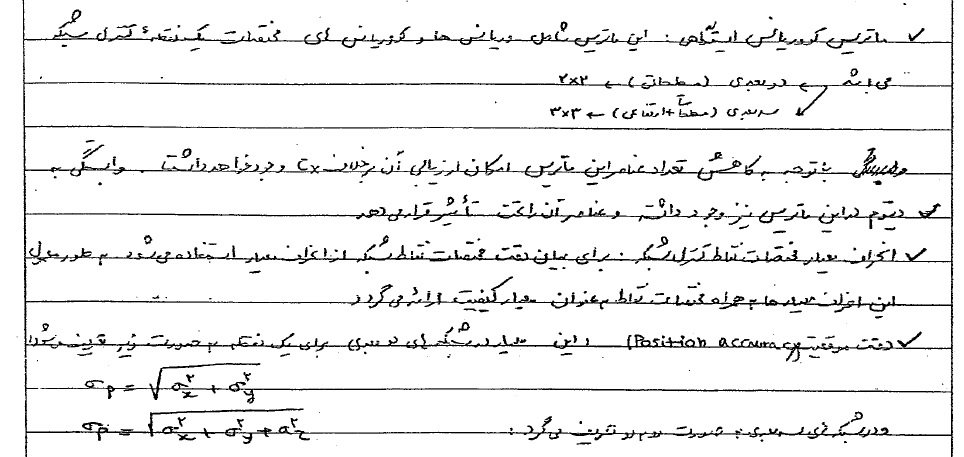 ✓ ماتریس کوواریانس ایستگاهی: این ماتریس شامل وریانس ها و کوواریانس های مختصات یک نقطه کنترل شبکه
می باشد ← دو بعدی (مسطحاتی) ← ۲×۲
↙ سه بعدی (مسطحاتی+ارتفاعی) ← ۳×۳
با توجه به کاهش تعداد عناصر این ماتریس امکان ارزیابی آن برخلاف Cx وجود خواهد داشت. وابستگی به
✓ دیتوم در این ماتریس نیز وجود داشته و عناصر آن را تحت تأثیر قرار می دهد
✓ انحراف معیار مختصات نقاط کنترل شبکه: برای بیان دقت مختصات نقاط شبکه از انحراف معیار استفاده می شود به طور معمول
این انحراف معیارها به همراه مختصات نقاط به عنوان معیار کیفیت ارائه می گردد
✓ دقت موقعیت (Position accuracy): این معیار در شبکه های دو بعدی برای یک نقطه به صورت زیر تعریف می شود
σp = √σx² + σy²
و در شبکه های سه بعدی به صورت روبرو تعریف می گردد: σp = √σx² + σy² + σz²